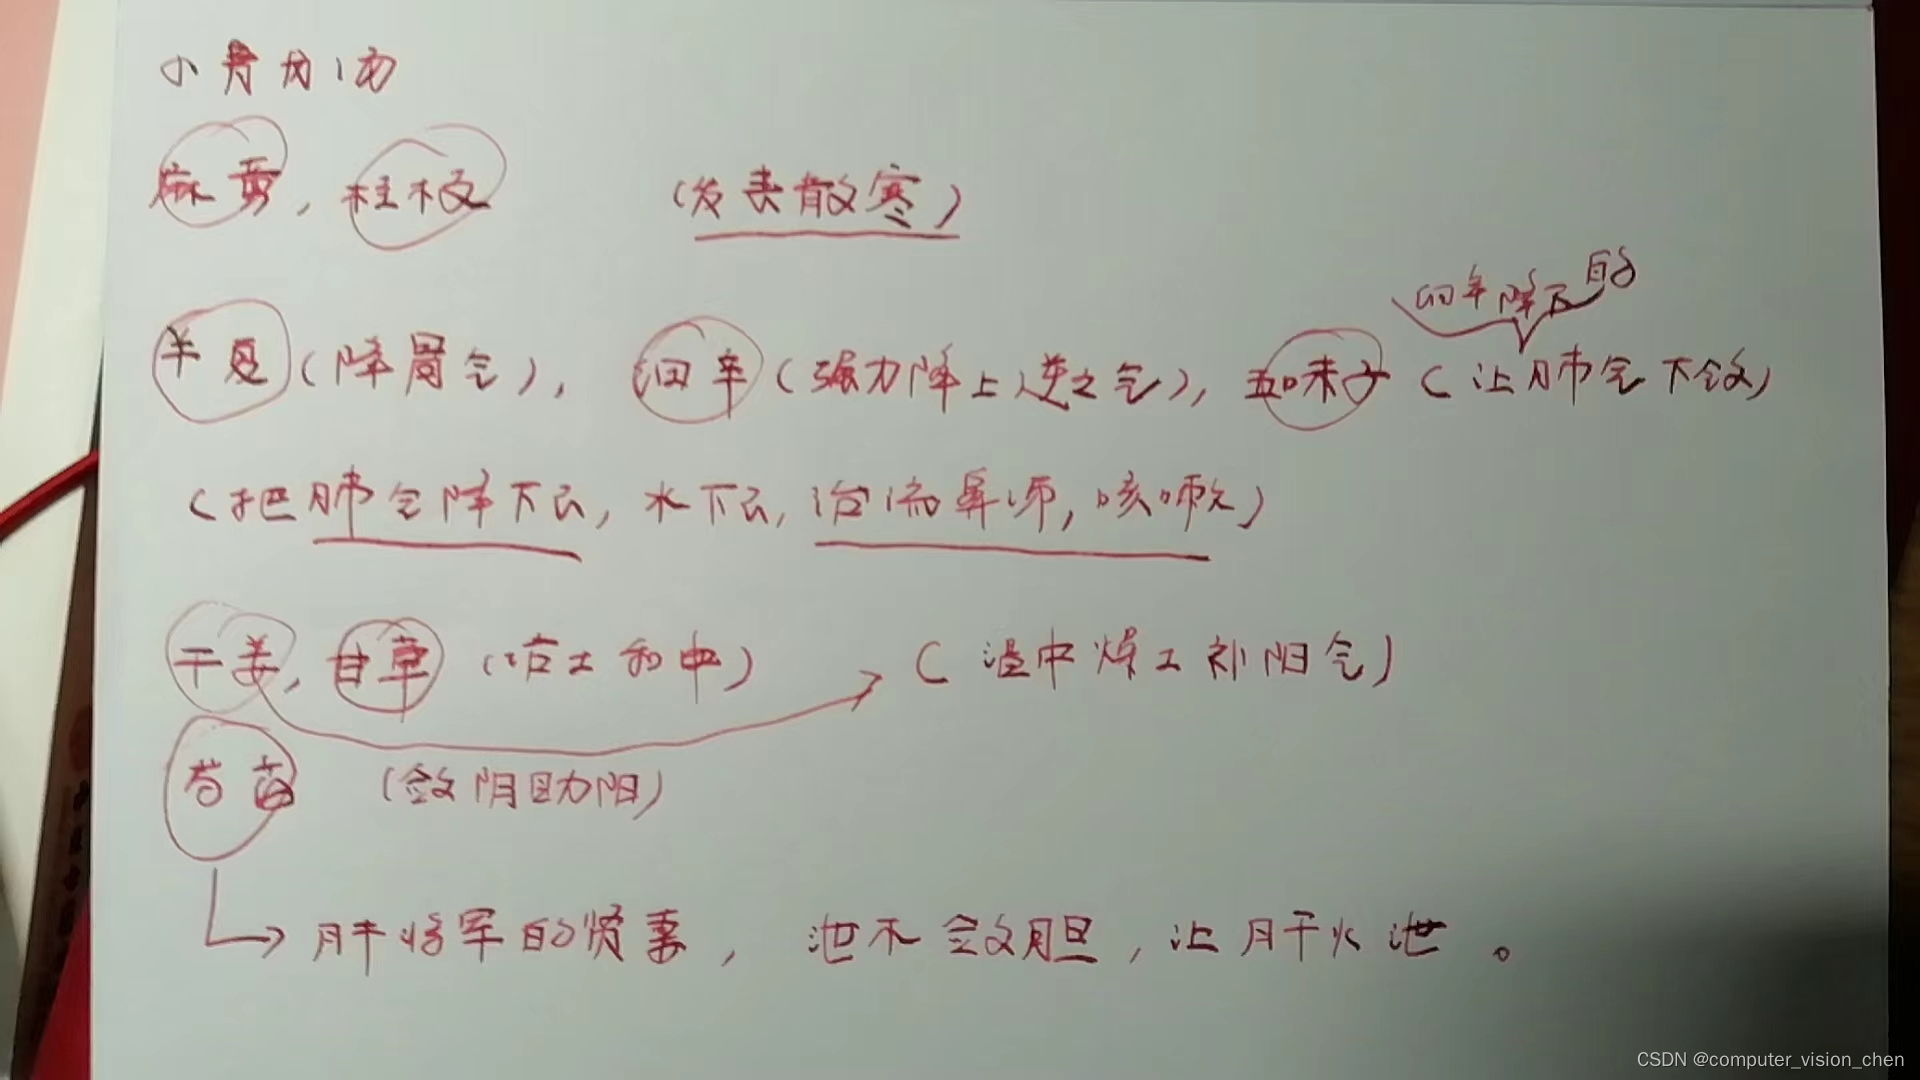 小青龙汤
麻黄，桂枝 （发表散寒）
细辛降下的
半夏（降胃气），细辛（强力降上逆之气），五味子（让肺气下敛）
（把肺气降下去，水下去，治流鼻涕，咳嗽）
干姜，甘草（培土和中） （温中燥土补阳气）
芍药 （敛阴助阳）
肝将军的贤妻，泄木敛胆，让肝火泄。
CSDN @computer_vision_chen